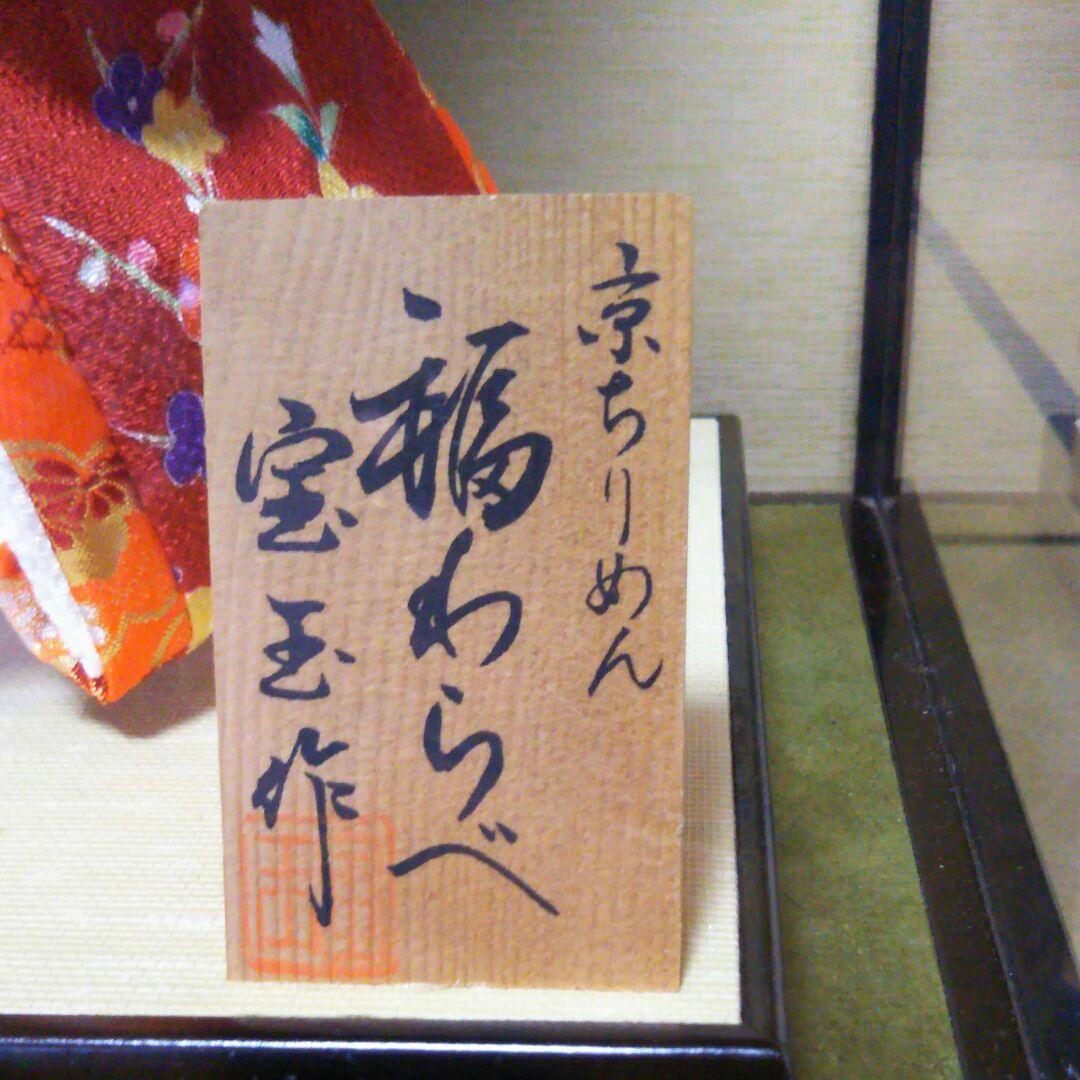 京ちりめん
福わらべ
宝玉作